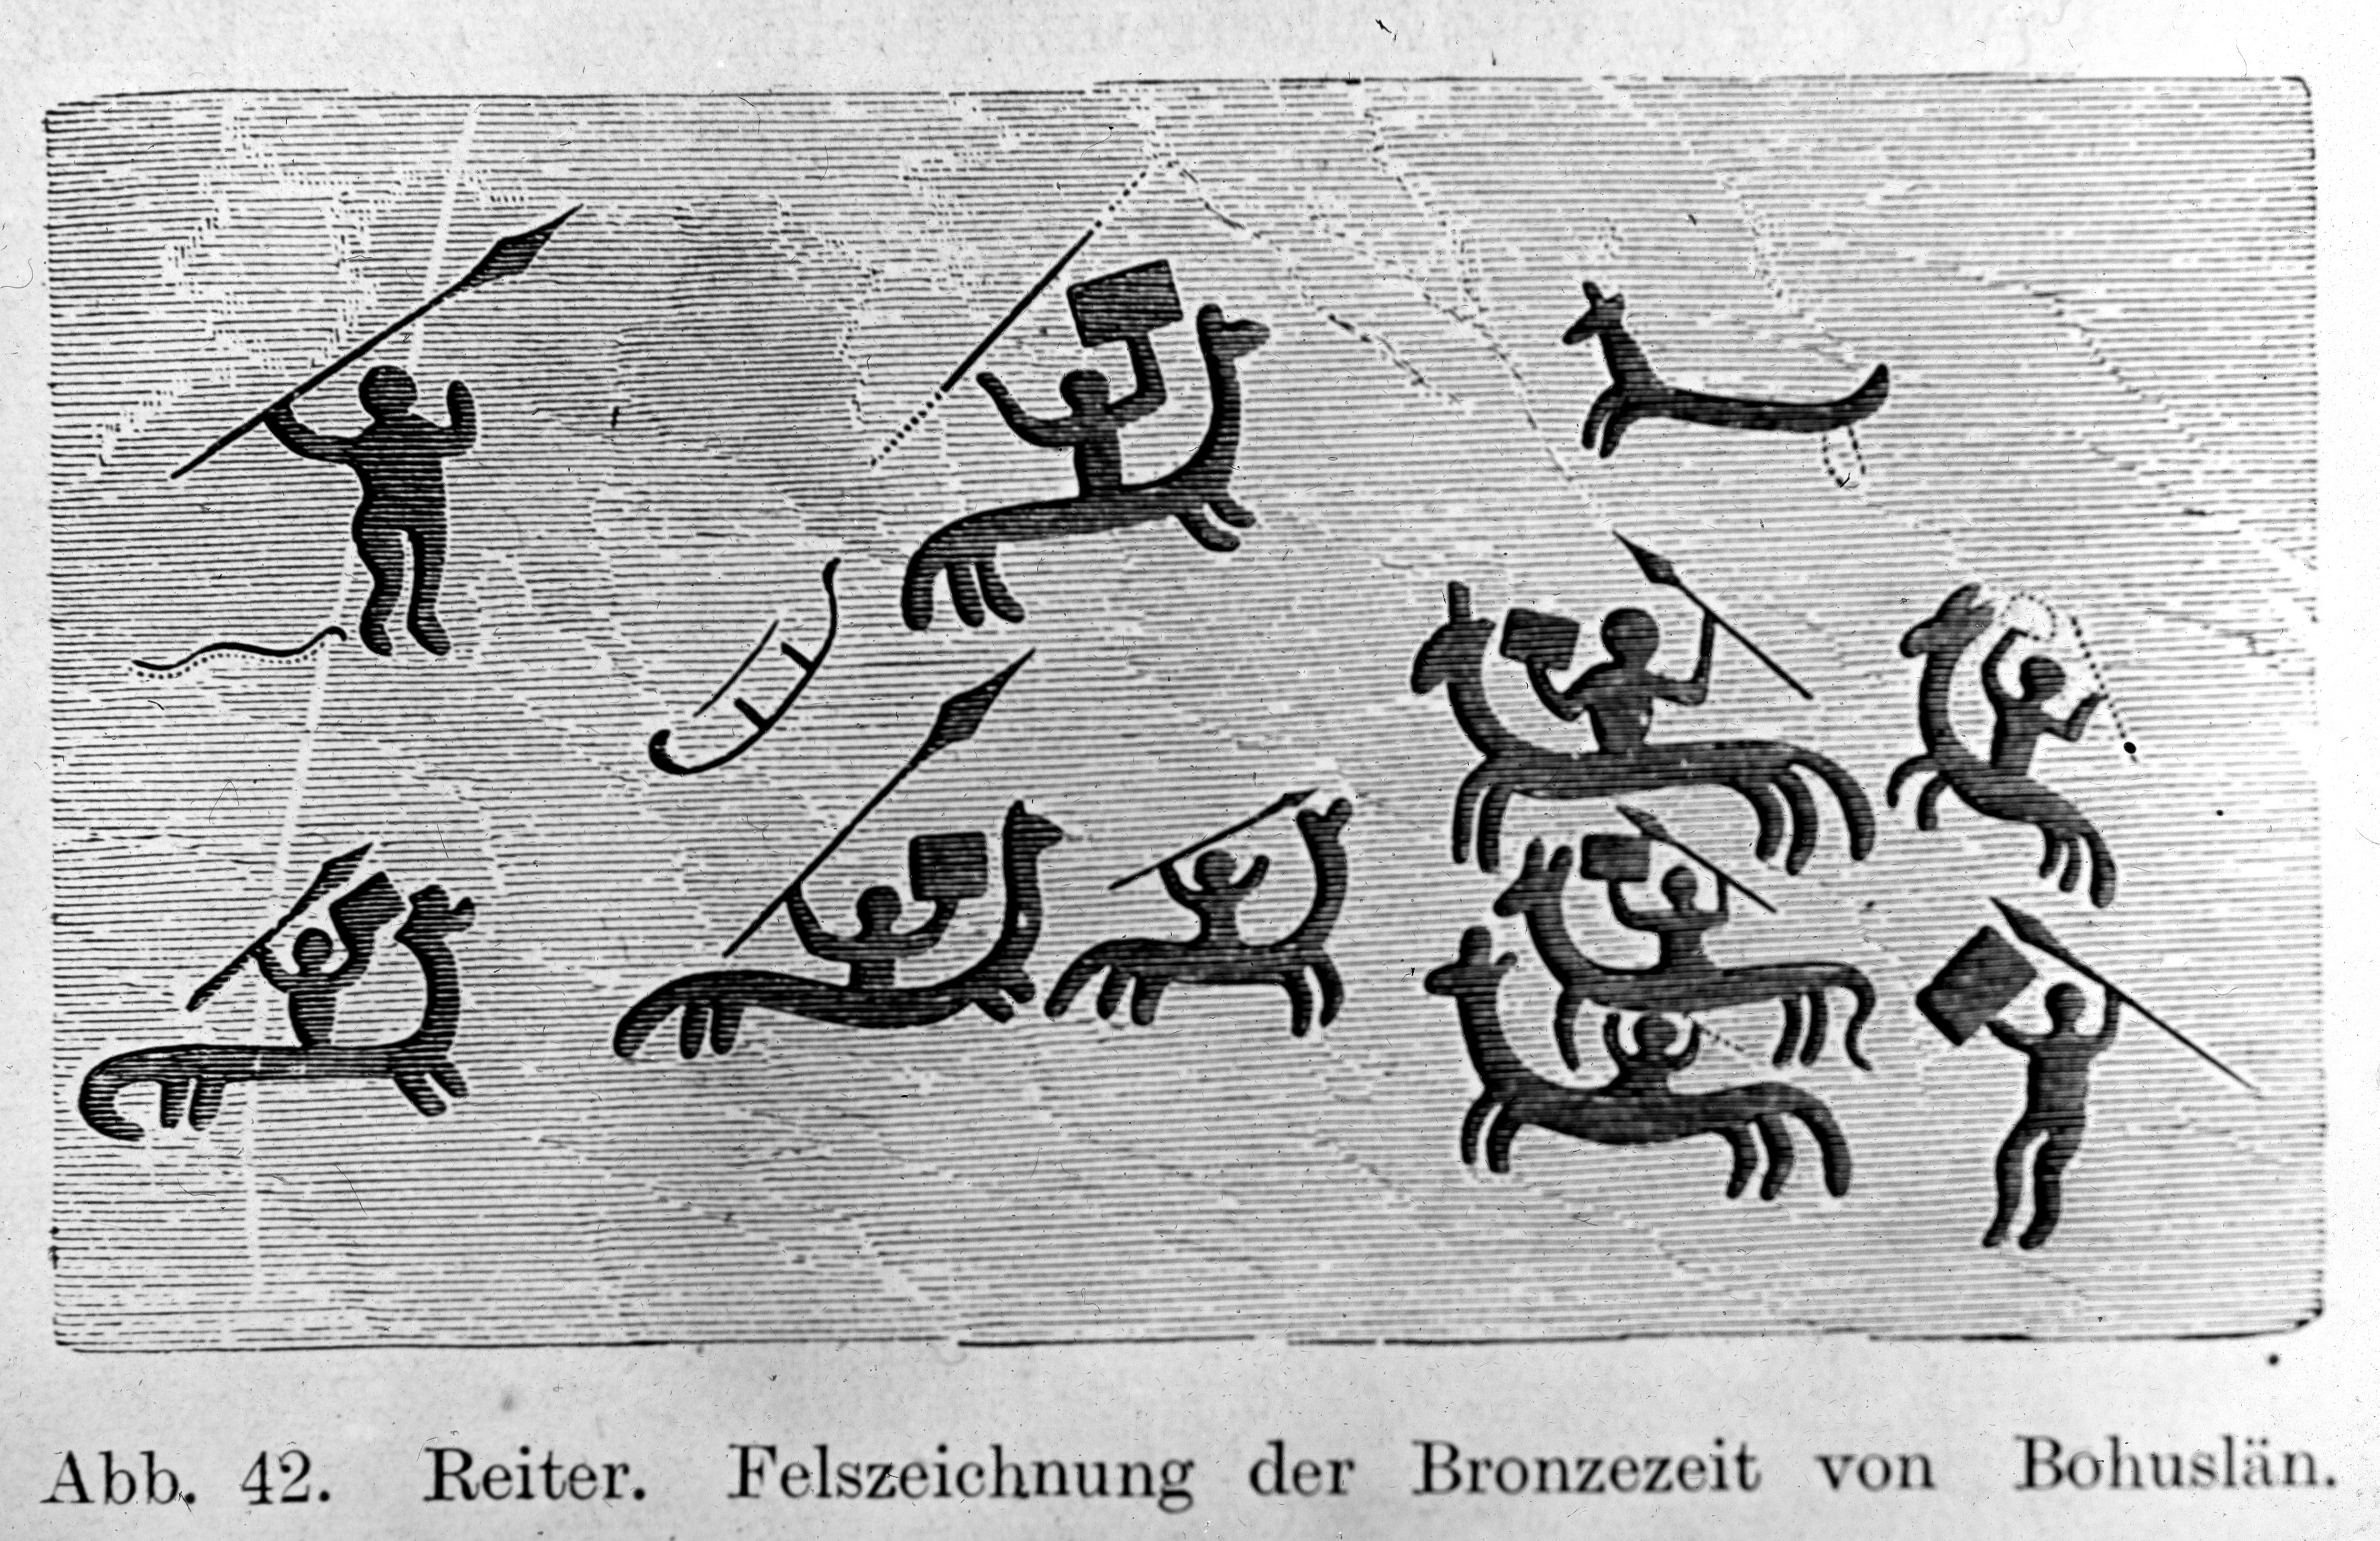 Abb. 42. Reiter. Felszeichnung der Bronzezeit von Bohuslän.